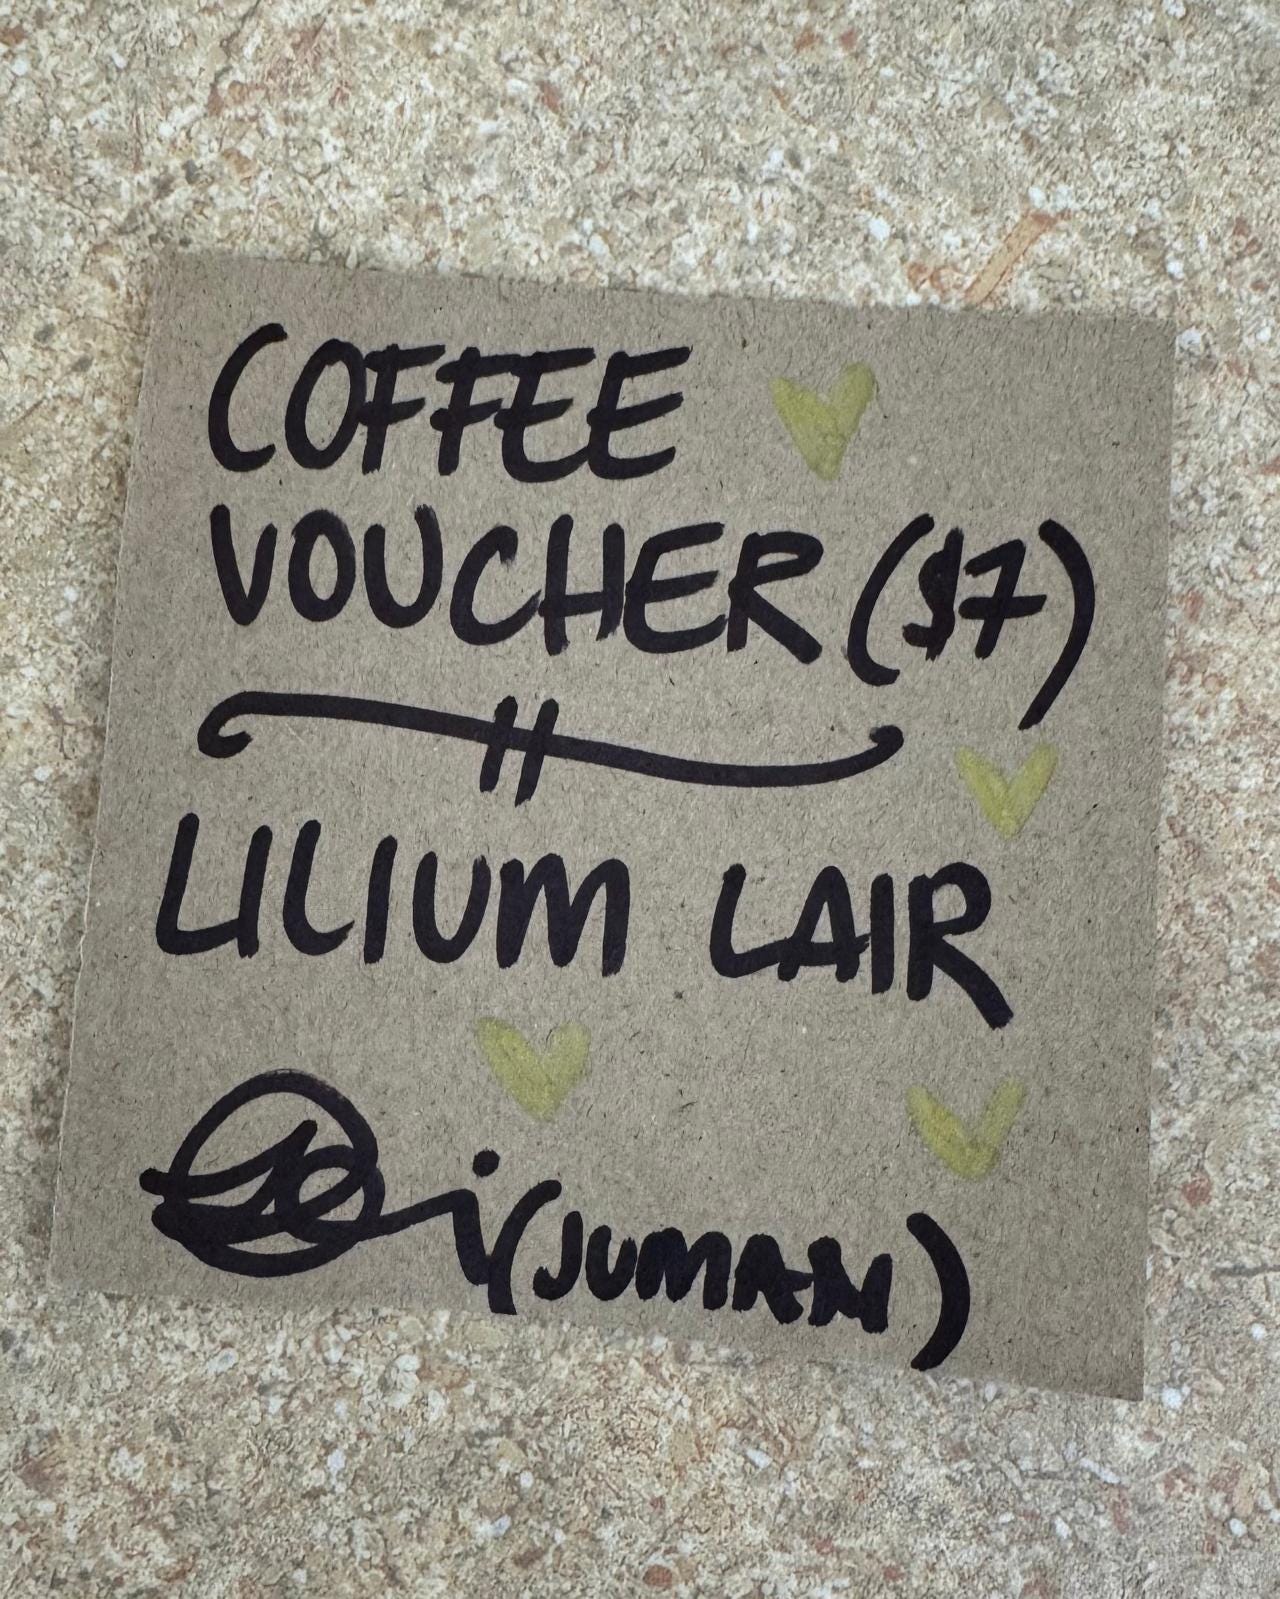 COFFEE
VOUCHER ($7)
LILIUM LAIR
(JUMAN)